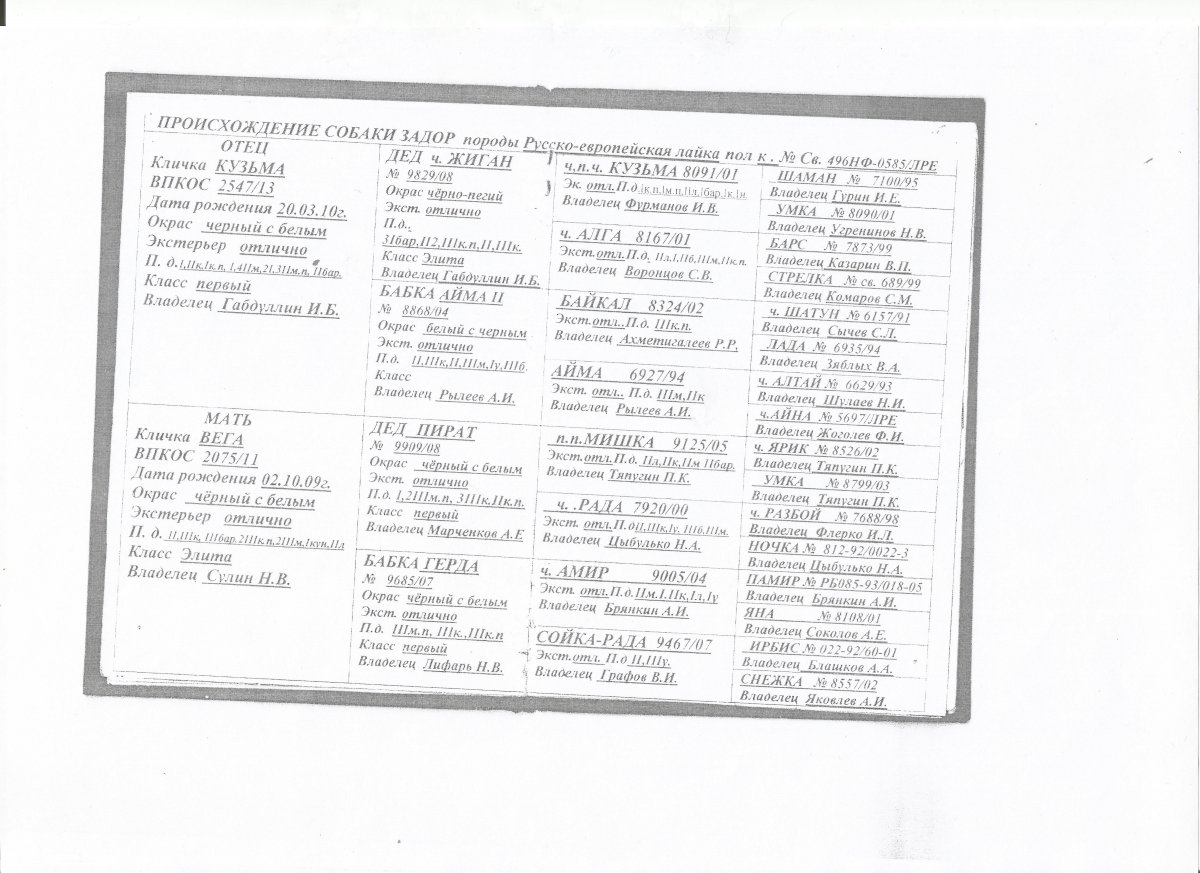 ПРОИСХОЖДЕНИЕ СОБАКИ ЗАДОР породы Русско-европейская лайка пол к . № Св. 496НФ-0585/ЛРЕ
ОТЕЦ
Кличка КУЗЬМА
ВПКОС 2547/13
Дата рождения 20.03.10г.
Окрас черный с белым
Экстерьер отлично
П. д.
Класс первый
Владелец Габдуллин И.Б.
МАТЬ
Кличка ВЕГА
ВПКОС 2075/11
Дата рождения 02.10.09г.
Окрас чёрный с белым
Экстерьер отлично
П. д.
Класс Элита
Владелец Сулин Н.В.
ДЕД ч. ЖИГАН
№ 9829/08
Окрас чёрно-пегий
Экст. отлично
П.д.
3Iбар,II2,IIIк.п,II,IIIк.
Класс Элита
Владелец Габдуллин И.Б.
БАБКА АЙМА II
№ 8868/04
Окрас белый с черным
Экст. отлично
П.д. II,IIIк,II,IIIм,Iу,IIIб.
Класс
Владелец Рылеев А.И.
ДЕД ПИРАТ
№ 9909/08
Окрас чёрный с белым
Экст. отлично
П.д. I,2IIIм.п, 3IIIк,IIк.п.
Класс первый
Владелец Марченков А.Е
БАБКА ГЕРДА
№ 9685/07
Окрас чёрный с белым
Экст. отлично
П.д. IIIм.п, IIIк.,IIIк.п
Класс первый
Владелец Лифарь Н.В.
ч.п.ч. КУЗЬМА 8091/01
Эк. отл.П.д.
Владелец Фурманов И.В.
ч. АЛГА 8167/01
Экст.отл.П.д. IIл.I,IIб,IIIм,IIк.п.
Владелец Воронцов С.В.
БАЙКАЛ 8324/02
Экст.отл.,П.д. IIIк.п.
Владелец Ахметигалеев Р.Р,
АЙМА 6927/94
Экс. отл.. П.д. IIIм,IIк
Владелец Рылеев А.И.
п.п.МИШКА 9125/05
Экст.отл.П.д. IIл,IIк,IIм IIбар.
Владелец Тяпугин П.К.
ч. .РАДА 7920/00
Экст. отл.П.дII,IIIк,Iу, IIIб,IIIм.
Владелец Цыбулько Н.А.
ч. АМИР 9005/04
Экст. отл.П.д.IIм.I.IIк,Iл,Iу
Владелец Брянкин А.И.
СОЙКА-РАДА 9467/07
Экст.отл. П.д II,IIIу.
Владелец Графов В.И.
ШАМАН № 7100/95
Владелец Гурин И.Е.
УМКА № 8090/01
Владелец Угренинов Н.В.
БАРС № 7873/99
Владелец Казарин В.П.
СТРЕЛКА № св. 689/99
Владелец Комаров С.М.
ч. ШАТУН № 6157/91
Владелец Сычев С.Л.
ЛАДА № 6935/94
Владелец Зяблых В.А.
ч. АЛТАЙ № 6629/93
Владелец Шулаев Н.И.
ч.АЙНА № 5697/ЛРЕ
Владелец Жоголев Ф.И.
ч. ЯРИК № 8526/02
Владелец Тяпугин П.К.
УМКА № 8799/03
Владелец Тяпугин П.К.
ч. РАЗБОЙ № 7688/98
Владелец Флерко И.Л.
НОЧКА № 812-92/0022-3
Владелец Цыбулько Н.А.
ПАМИР № РБ085-93/018-05
Владелец Брянкин А.И.
ЯНА № 8108/01
Владелец Соколов А.Е.
ИРБИС № 022-92/60-01
Владелец Блашков А.А.
СНЕЖКА № 8557/02
Владелец Яковлев А.И.